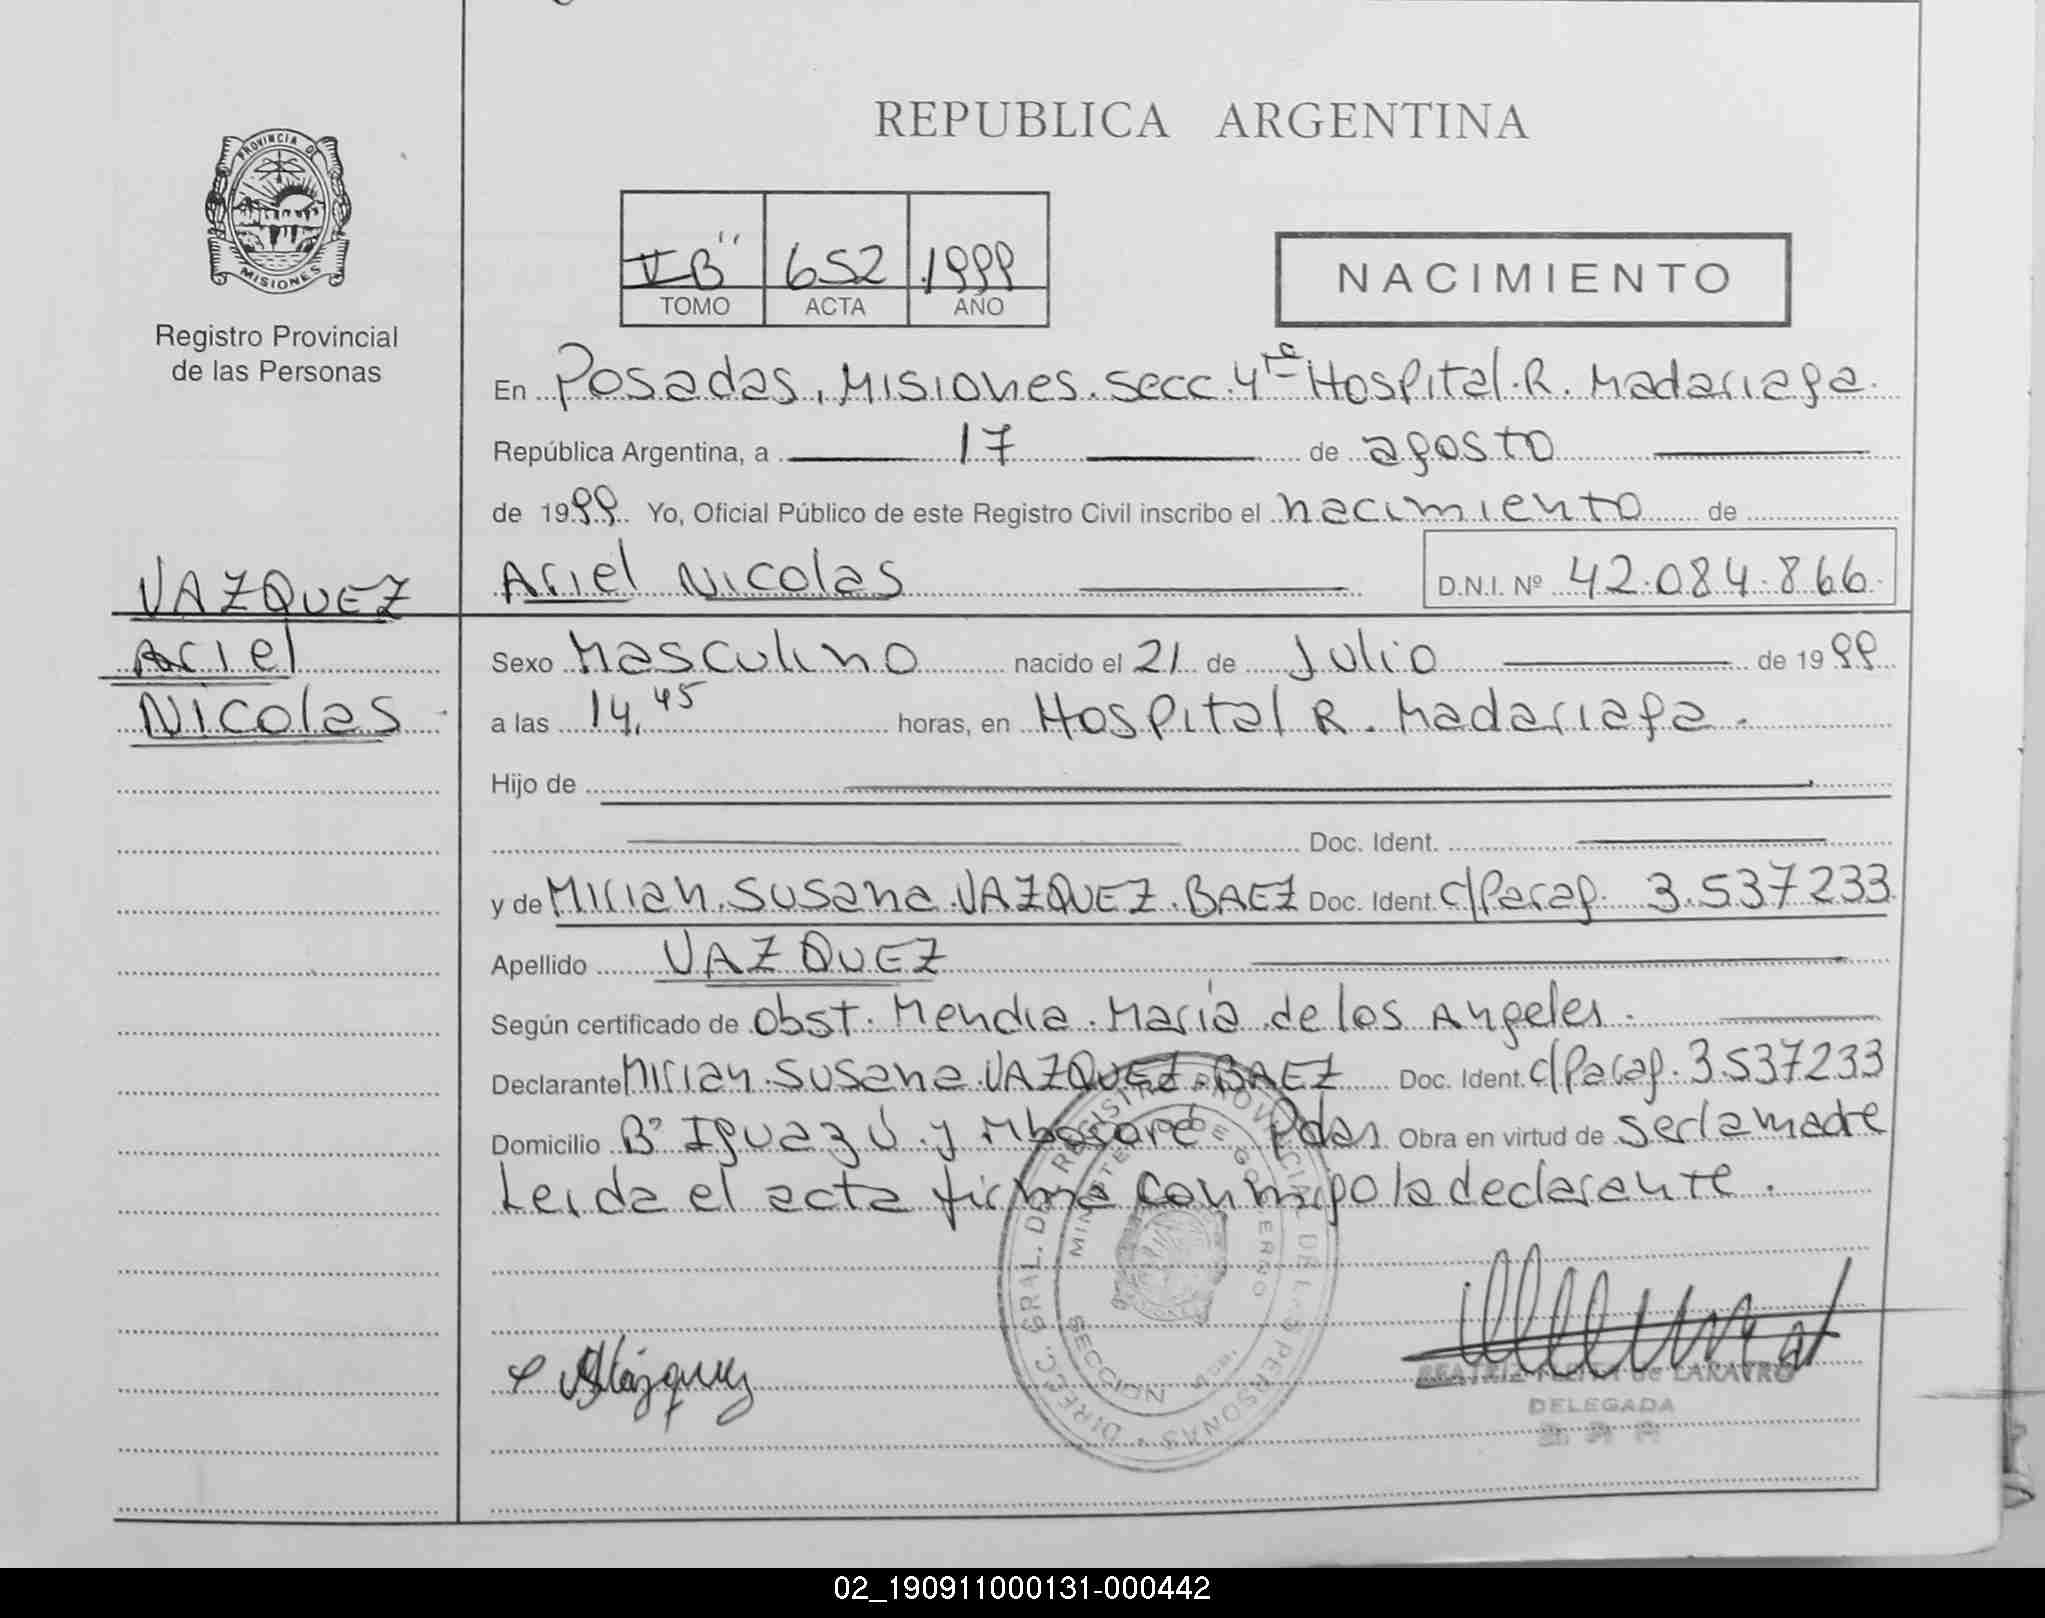 REPUBLICA ARGENTINA
PROVINCIA DE
MISIONES
Registro Provincial
de las Personas
B" 652 1999
TOMO ACTA AÑO
NACIMIENTO
En Posadas, Misiones. Secc. 4ta Hospital. R. Madariaga.
República Argentina, a 17 de agosto
de 1999 Yo, Oficial Público de este Registro Civil inscribo el nacimiento de
Ariel Nicolas D.N.I. Nº 42.084.866.
VAZQUEZ
Ariel
Nicolas
Sexo Masculino nacido el 21 de Julio de 1999
a las 14,45 horas, en Hospital R. Madariaga.
Hijo de
Doc. Ident.
y de Mirian Susana VAZQUEZ BAEZ Doc. Ident. c/Parag. 3.537233
Apellido VAZQUEZ
Según certificado de Obst. Mendia. María de los Angeles.
Declarante Mirian Susana VAZQUEZ BAEZ Doc. Ident. c/Parag. 3.537233
Domicilio Bº Iguazú y Mbocaré Pdas Obra en virtud de ser la madre
Leida el acta firma conmigo la declarante.
DIRECC. GRAL. DE REGISTRO PROVINCIAL DE LAS PERSONAS
MINISTERIO DE GOBIERNO
SECCION
Vázquez
BEATRIZ de LARATRO
DELEGADA
02_190911000131-000442